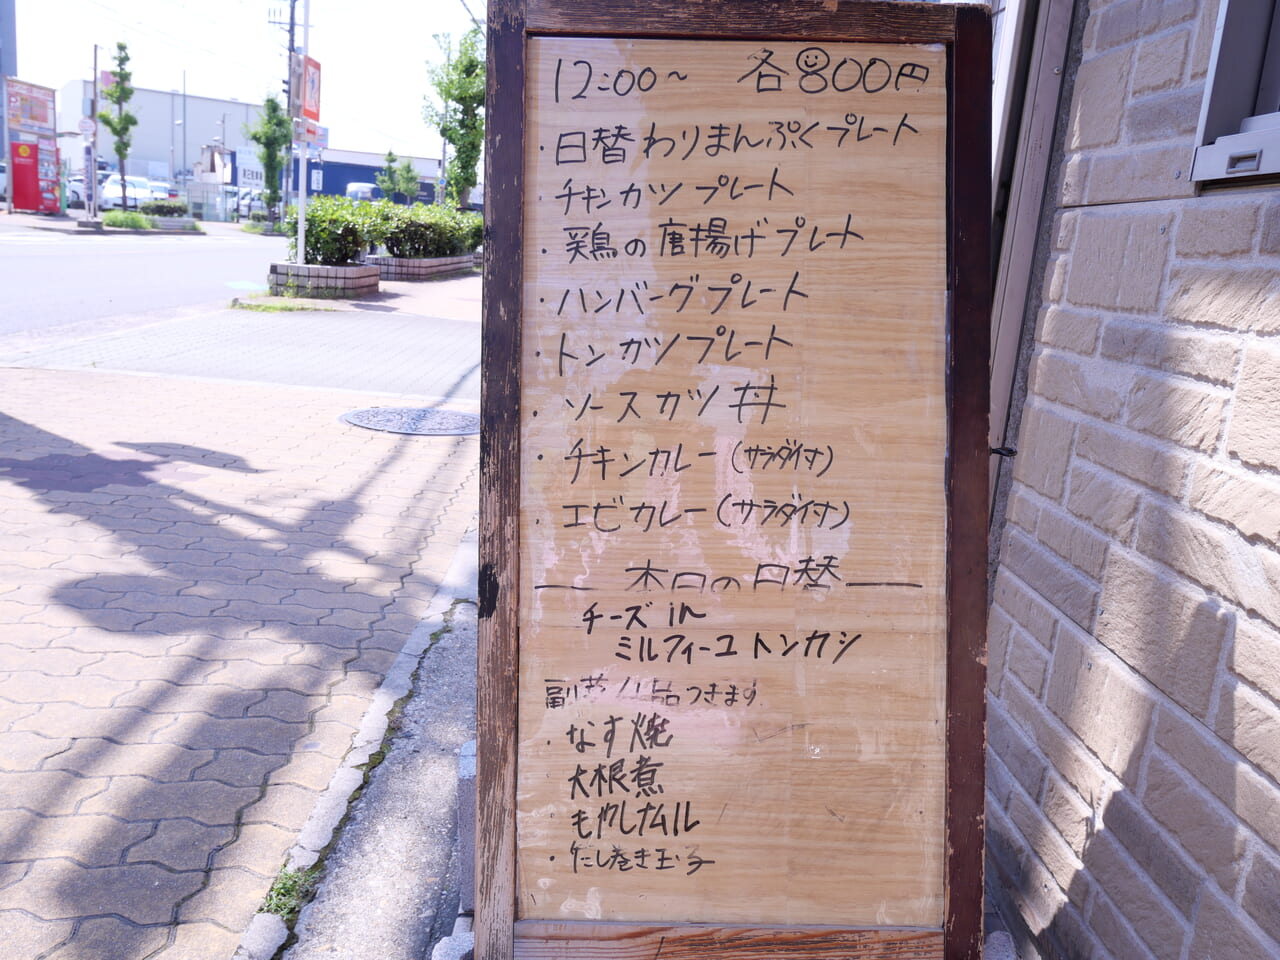 12:00~ 各800円
・日替わりまんぷくプレート
・チキンカツプレート
・鶏の唐揚げプレート
・ハンバーグプレート
・トンカツプレート
・ソースカツ丼
・チキンカレー(サラダ付)
・エビカレー(サラダ付)
本日の日替
チーズin
ミルフィーユトンカシ
副菜 品つきます
・なす焼
大根煮
もやしナムル
・だし巻き玉子